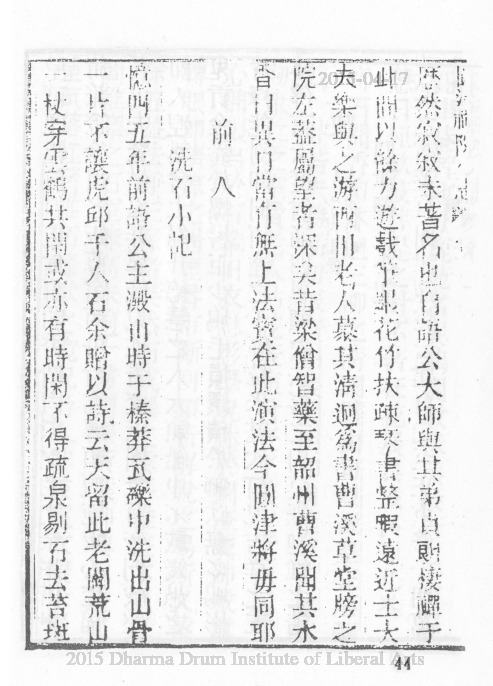 歴然寂寂未著名也有語公大師與其弟貞
棲禪于
此間以餘力遊戲
花竹扶疎琴書整暇遠近士大
夫樂與之游西
老人慕其淸迥為書曹溪草堂牓之
院左蓋屬望者深矣昔梁僧智藥至韶州曹溪聞其水
香曰異日當有無上法寳在此演法今圓津將毋同耶
前八
洗石小記
憶四五年前語公主澱山時于榛莽瓦礫中洗出山骨
一片不讓虎邱千人石余贈以詩云天留此老闢荒山
一杖芽雲鶴共閒或亦有時閒不得疏泉剔石去苔斑
2015-04-17
2015 Dharma Drum Institute of Liberal Arts
44